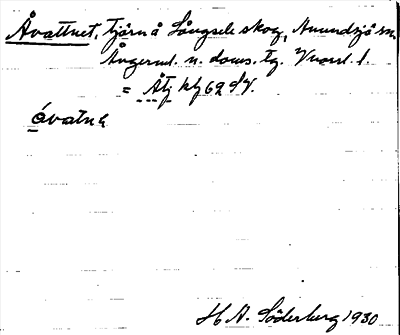 Åvattnet, tjärn å Långsele skog, Anundsjö sn,
Ångerml. n. doms. tg. Vnorrl. l.
= Åtj kbl 62 SV.
óvatnɛ
H. A. Söderberg 1930